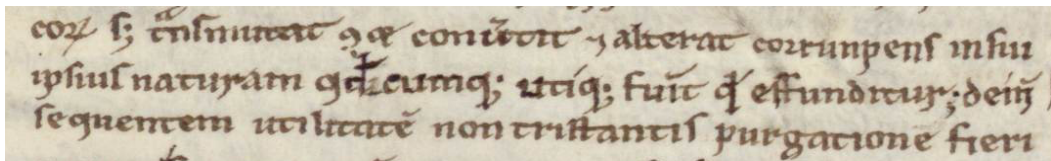 corꝝ sꝫ tͣnsmutat ꝯq̄ conu̾tit ⁊ alterat corrunpens in sui
ipsius naturam qđcumqꝫ utiqꝫ fuīt qđ effunditurꝫ deīn
sequentem utilitatē non tristantis purgatione fieri